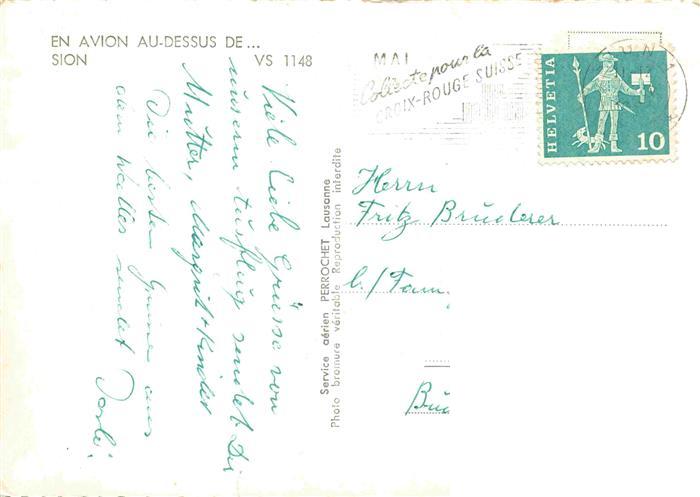 EN AVION AU-DESSUS DE...
SION VS 1148
MAI
Collecte pour la
CROIX-ROUGE SUISSE
HELVETIA
10
Viele liebe Grüsse von
unserm Ausflug sendet Dir
Mutter, Margrit + Kinder
Die besten Grüsse aus
dem Wallis sendet
Service aérien PERROCHET Lausanne
Photo bromure véritable Reproduction interdite
Herrn
Fritz Bruderer
b./Fam.